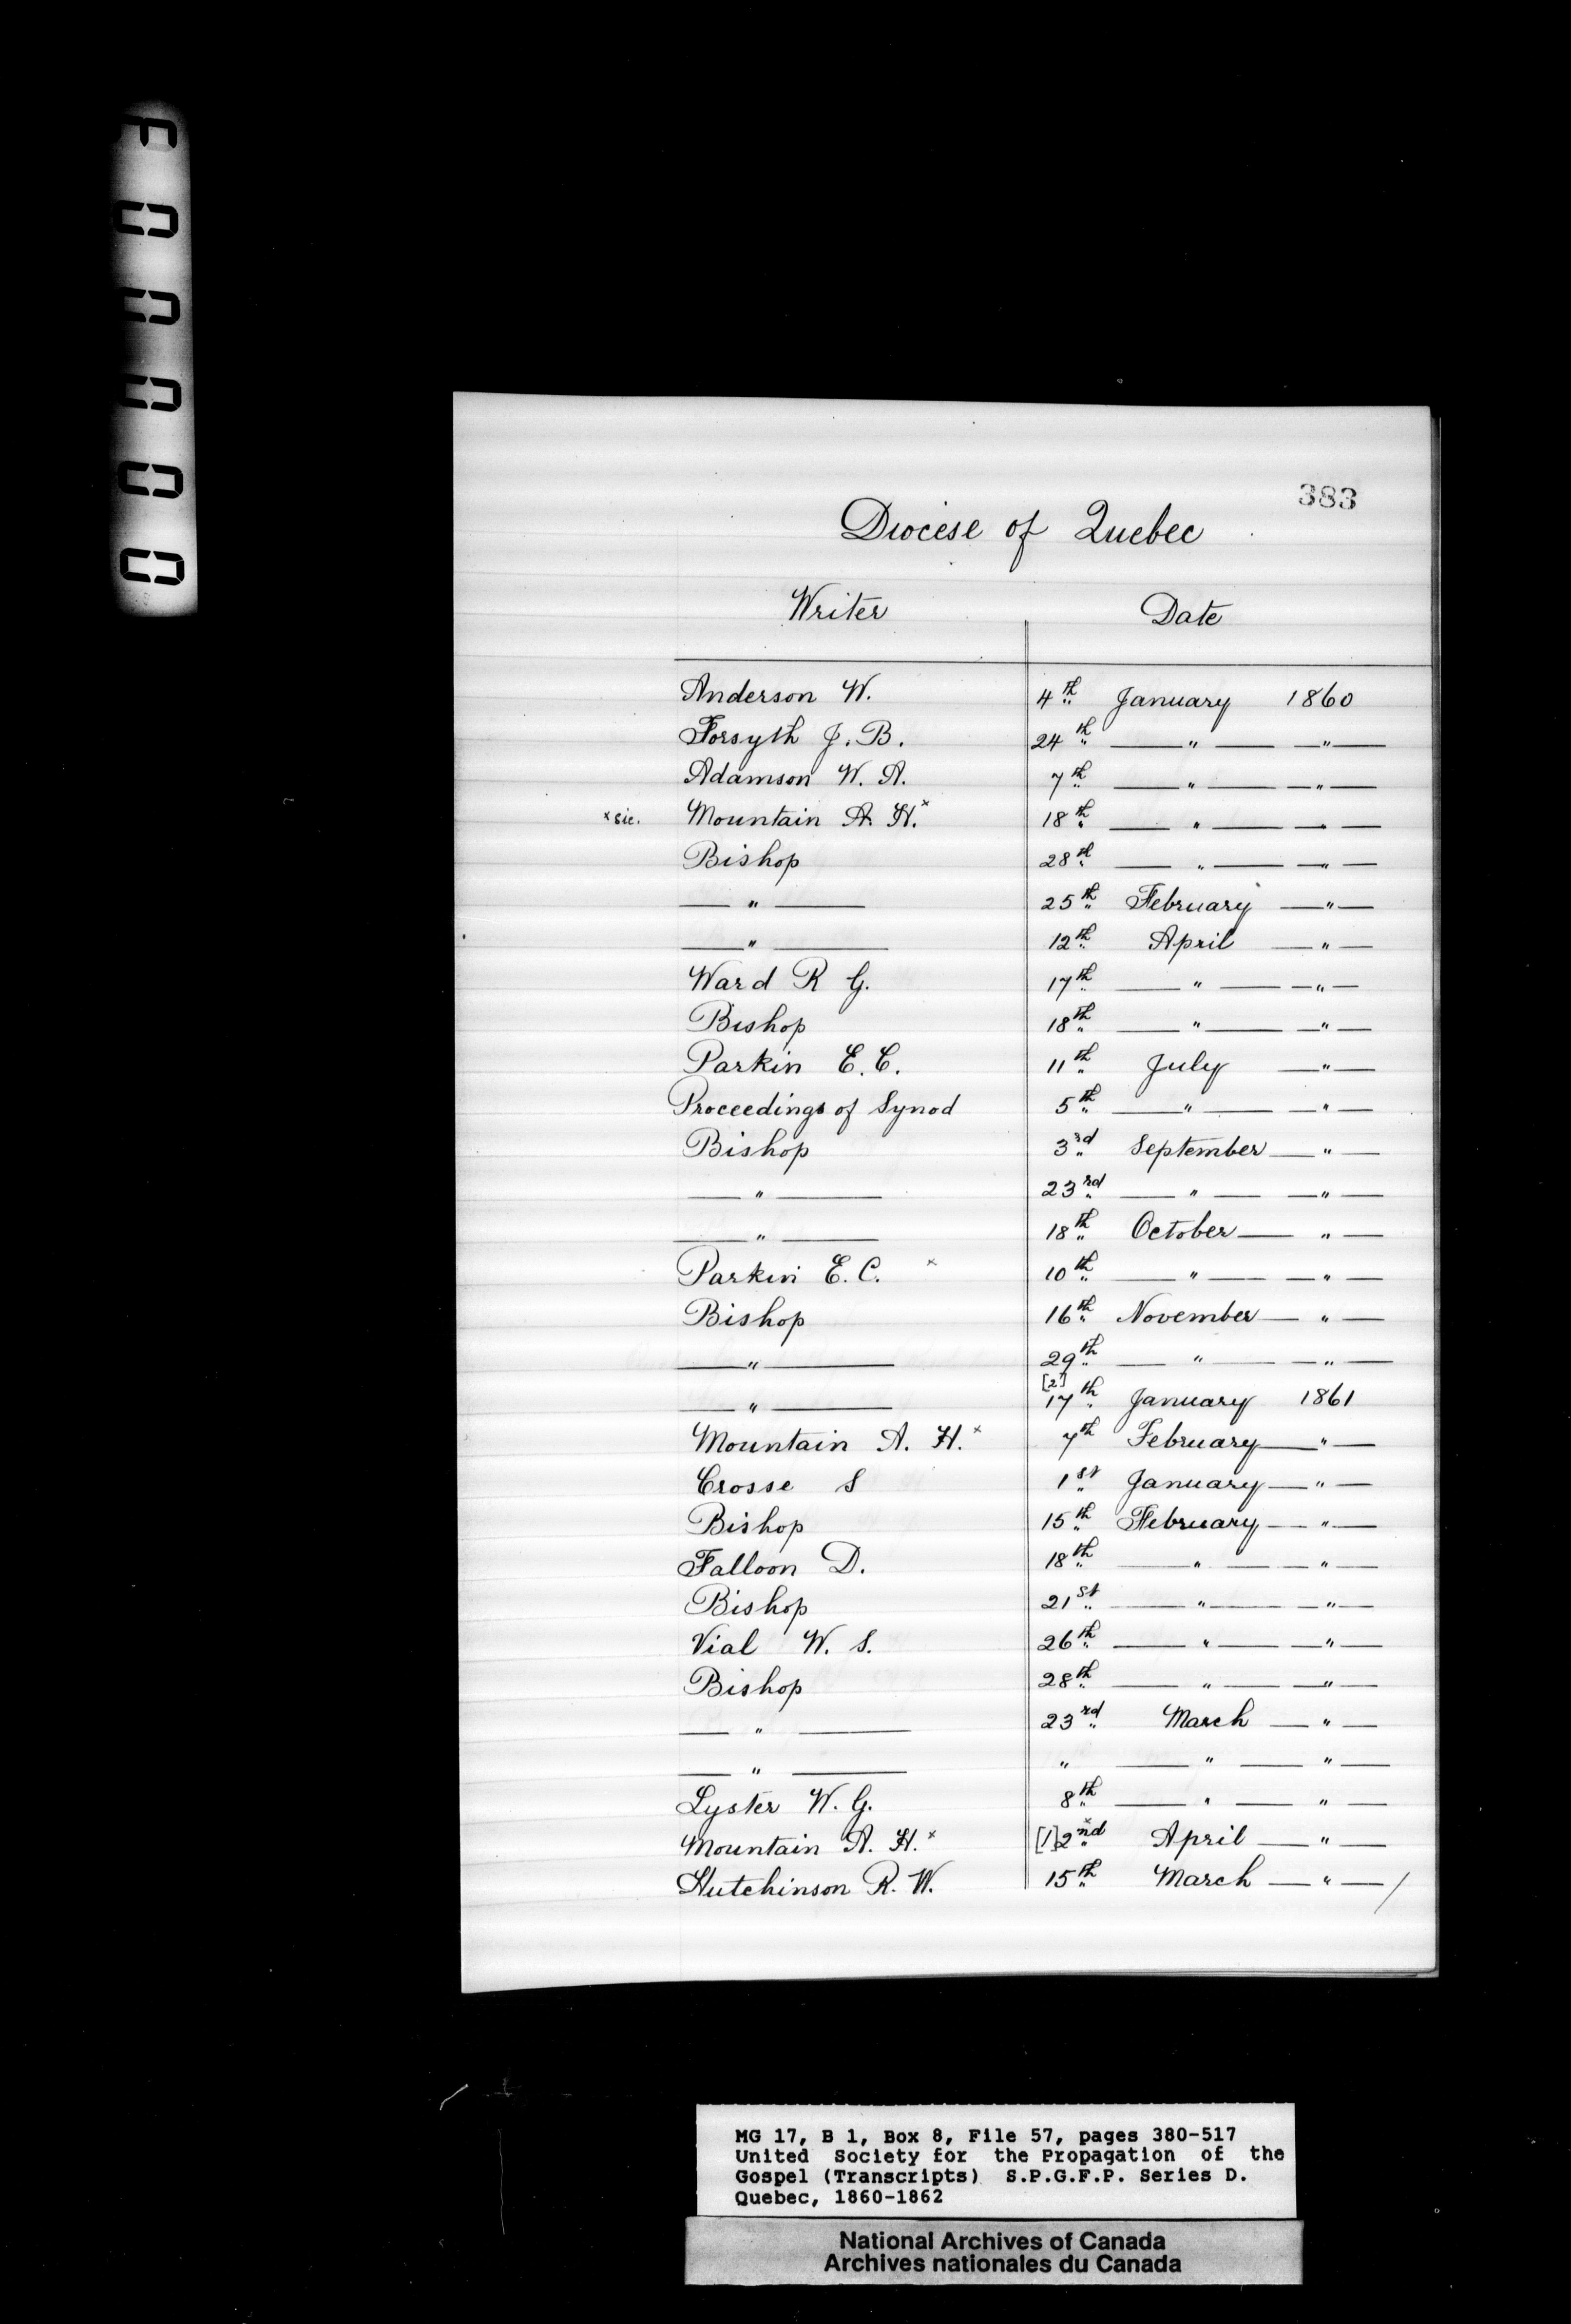 F00000
383
Diocese of Quebec
Writer Date
Anderson W. 4th January 1860
Forsyth J. B. 24th — " — — " —
Adamson W. A. 7th — " — — " —
x sic. Mountain A. H.x 18th — " — — " —
Bishop 28th — " — — " —
— " — 25th February — " —
— " — 12th April — " —
Ward R G. 17th — " — — " —
Bishop 18th — " — — " —
Parkin E. C. 11th July — " —
Proceedings of Synod 5th — " — — " —
Bishop 3rd September — " —
— " — 23rd — " — — " —
— " — 18th October — " —
Parkin E. C. x 10th — " — — " —
Bishop 16th November — " —
— " — 29th — " — — " —
— " — [2] 17th January 1861
Mountain A. H.x 7th February — " —
Crosse S 1st January — " —
Bishop 15th February — " —
Falloon D. 18th — " — — " —
Bishop 21st — " — — " —
Vial W. S. 26th — " — — " —
Bishop 28th — " — — " —
— " — 23rd March — " —
— " — " — " — " —
Lyster W. G. 8th — " — " —
Mountain A. H.x [1]2nd x April — " —
Hutchinson R. W. 15th March — " — /
MG 17, B 1, Box 8, File 57, pages 380-517
United Society for the Propagation of the
Gospel (Transcripts) S.P.G.F.P. Series D.
Quebec, 1860-1862
National Archives of Canada
Archives nationales du Canada